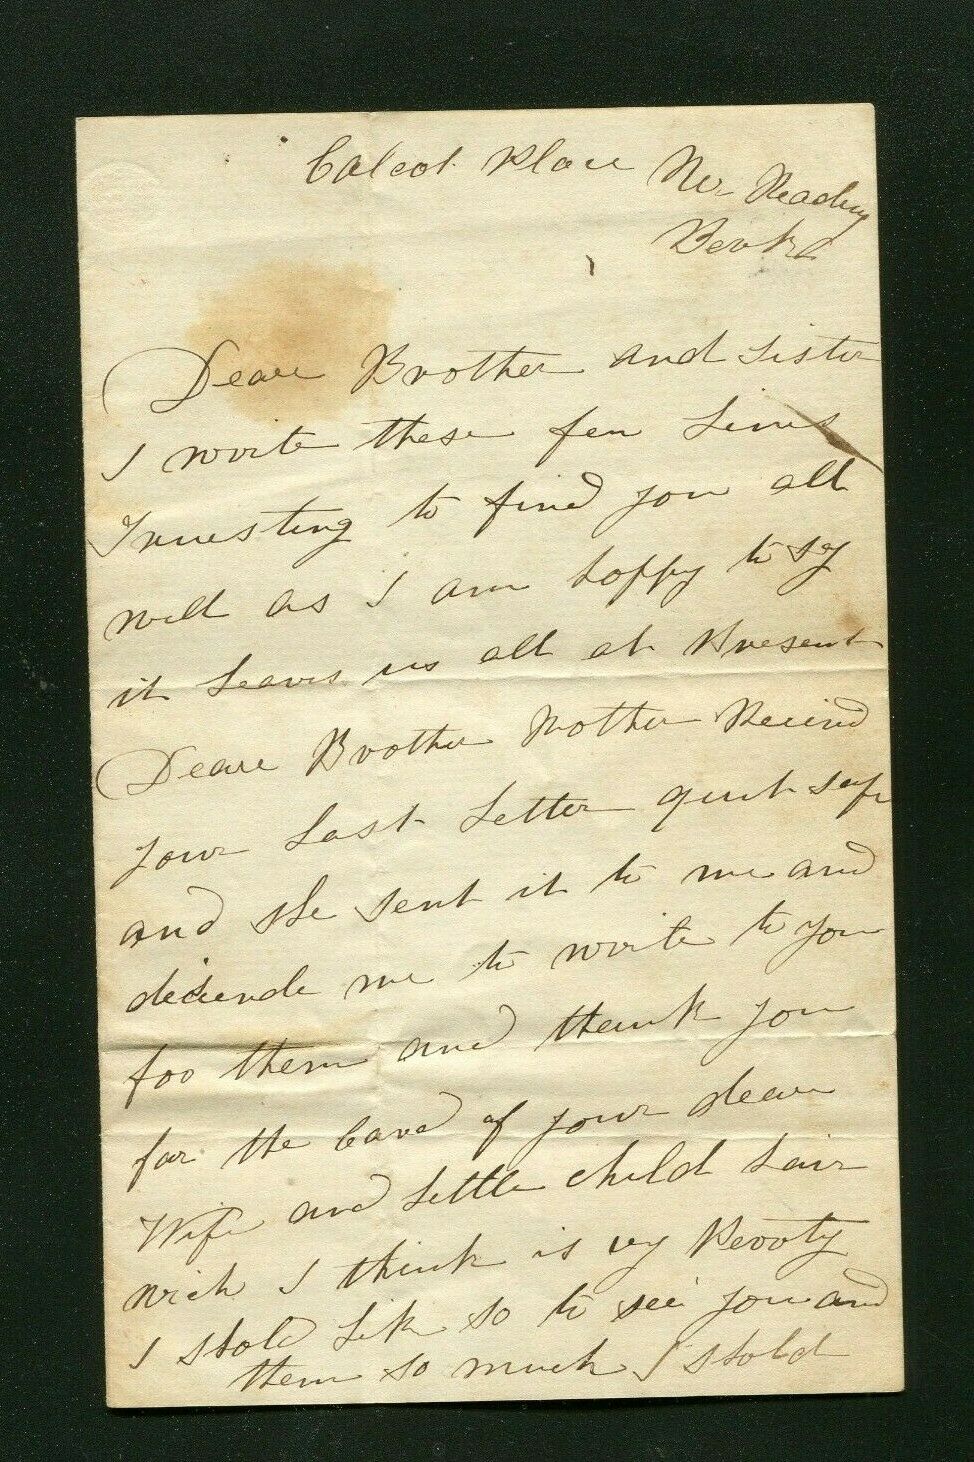 Calcot Place Nr Reading
Berks
Deare Brother and Sister
I write these few Lines
Truesting to find you all
well as I am happy to sy
it Leaves us all at Present
Deare Brother Mother Receivd
your Last Letter quit safe
and she sent it to me and
me to write to you
foo them and thank you
for the Card of your deare
Wife and Little child hair
wich I think is vy Peroty
I shold Lik so to see you and
them so much I shold